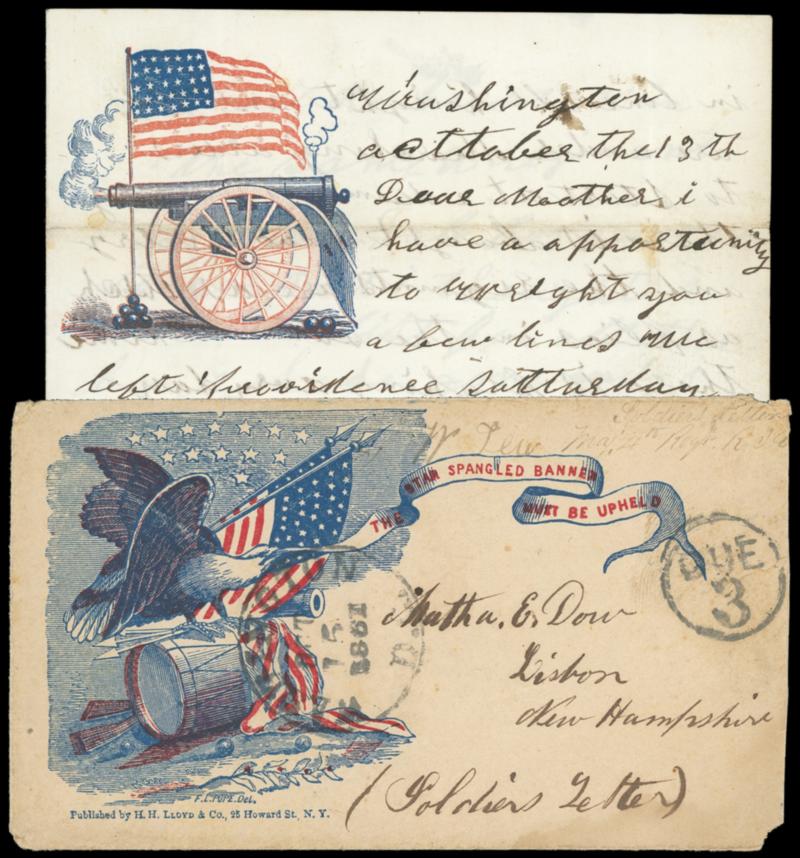 Washington
acttober the 13th
Dear Moother i
have a apportunity
to wreight you
a few lines we
left providence satturday
Soldiers Letter
W. Lew
THE STAR SPANGLED BANNER
MUST BE UPHELD
DUE
3
OCT
15
1861
Martha. E. Dow
Lisbon
New Hampshire
(Soldiers Letter)
F. C. POPE. Del.
Published by H. H. LLOYD & Co., 25 Howard St., N. Y.